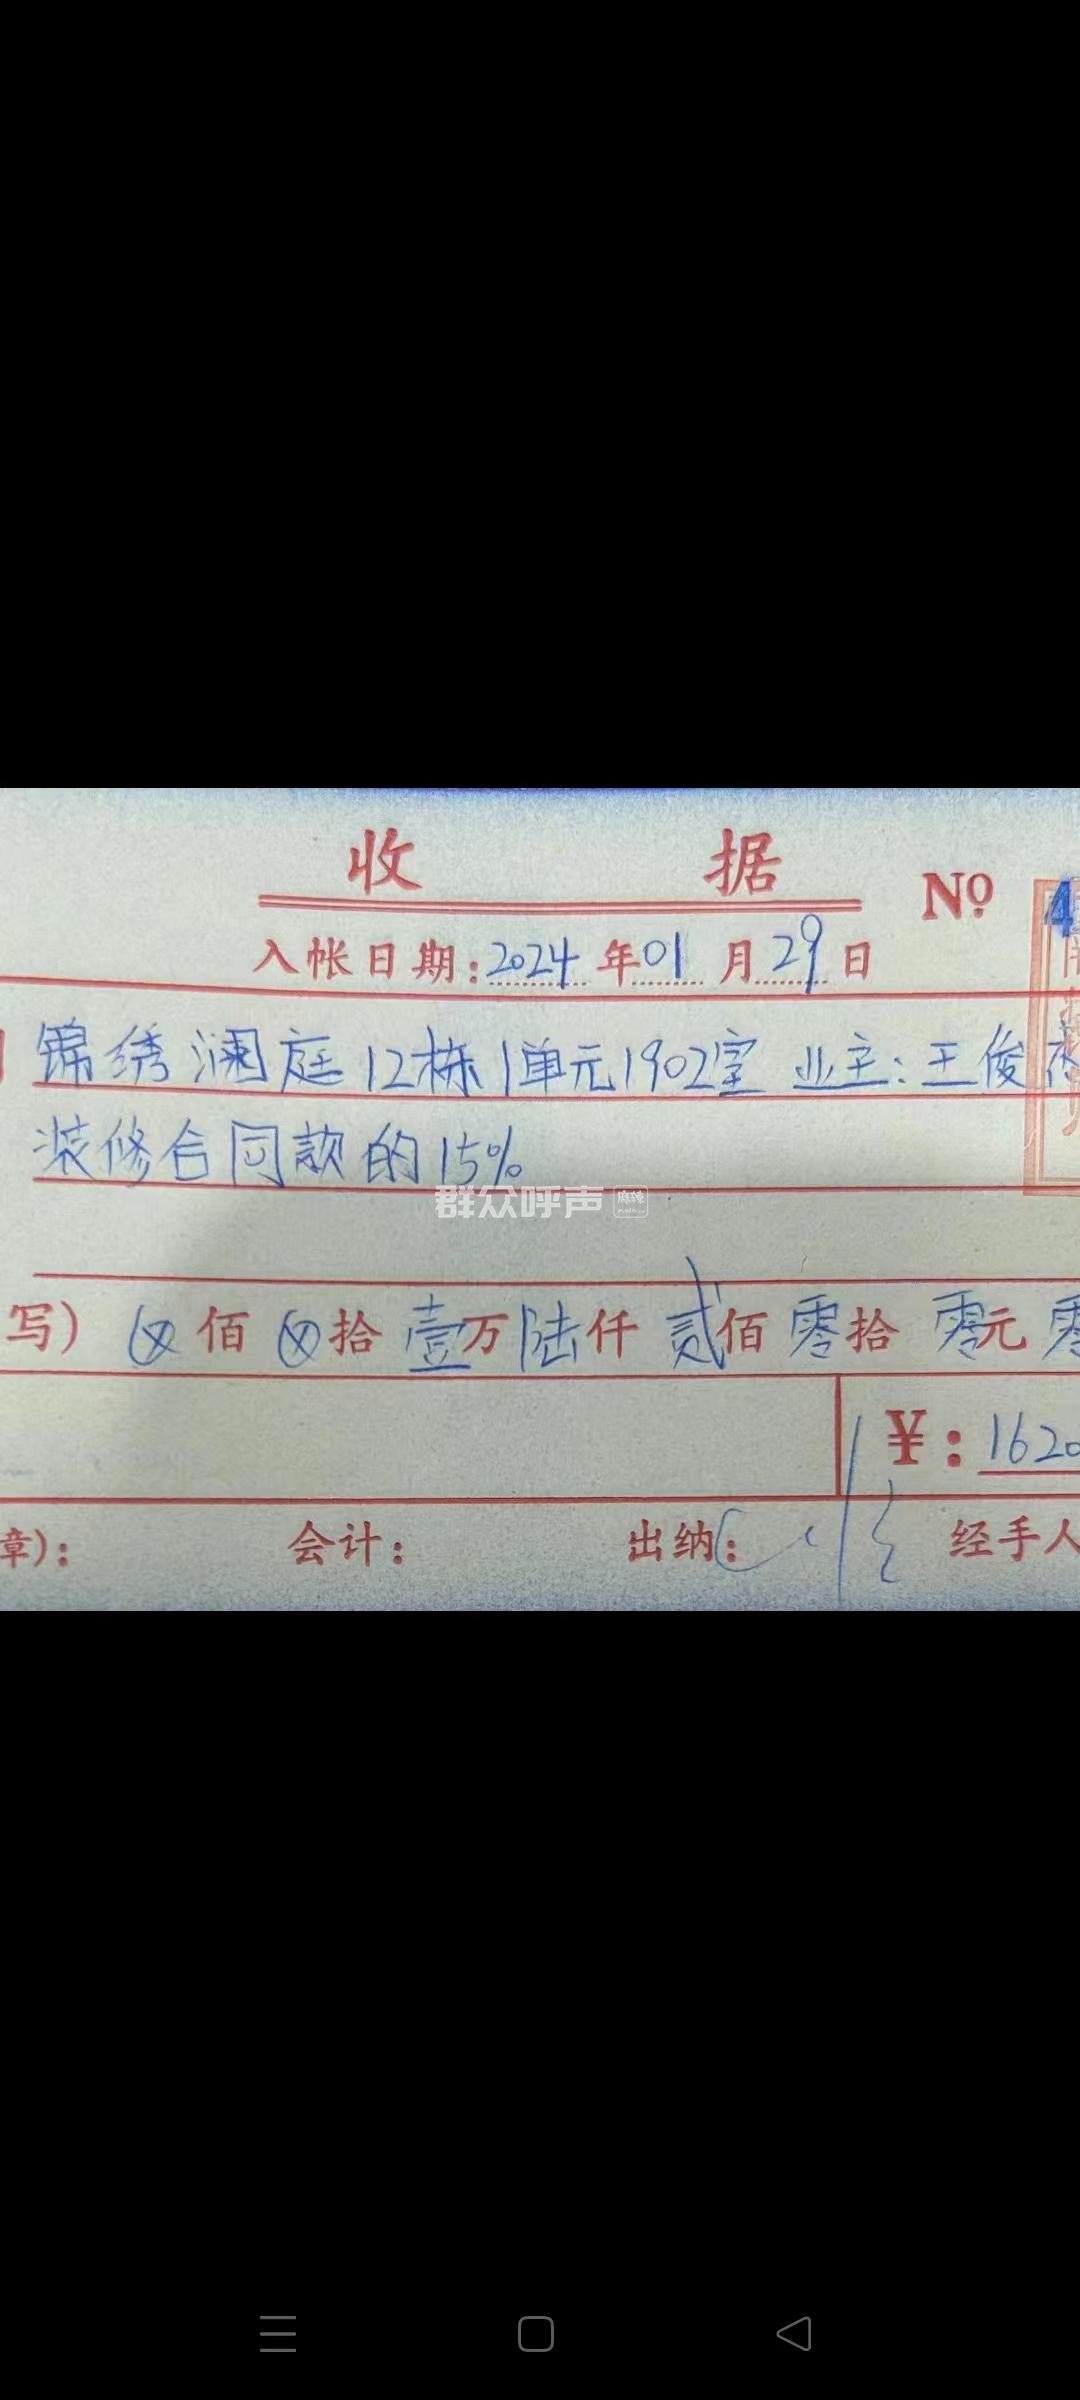 收 据 Nº 4
入帐日期:2024年01月29日
锦绣澜庭12栋1单元1902室 业主:王俊
装修合同款的15%
群众呼声 麻辣
写) ⊗佰⊗拾壹万陆仟贰佰零拾零元零
¥:1620
章): 会计: 出纳: 经手人